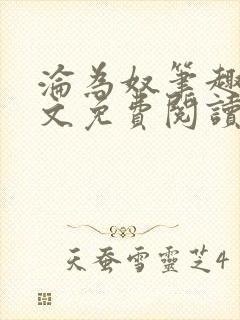 淪為奴筆趣
文免費閱讀
天蚕雪靈芝4